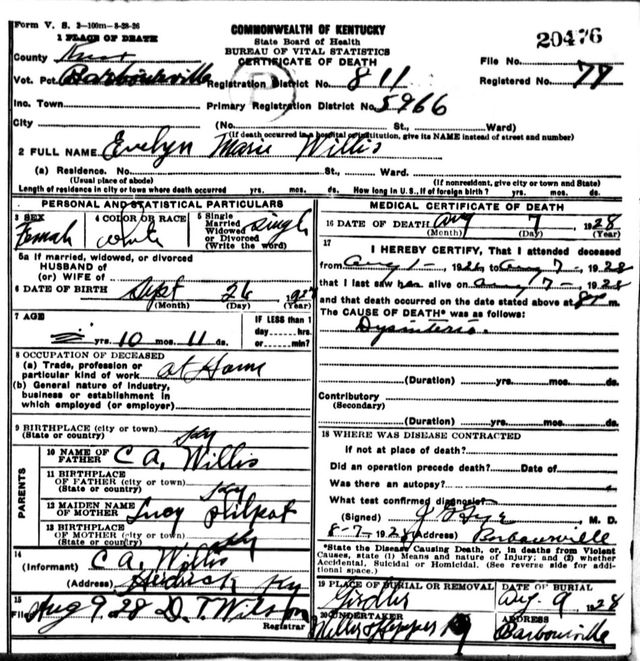 Form V. S. 2-100m-8-28-26
COMMONWEALTH OF KENTUCKY
State Board of Health
BUREAU OF VITAL STATISTICS
CERTIFICATE OF DEATH
20476
1 PLACE OF DEATH
County Knox
File No.
Vot. Pct. Barbourville Registration District No. 811 Registered No. 77
Inc. Town Primary Registration District No. 5966
City (No. St., Ward)
(If death occurred in a hospital or institution, give its NAME instead of street and number)
2 FULL NAME Evelyn Marie Willis
(a) Residence. No. St., Ward.
(Usual place of abode) (If nonresident, give city or town and State)
Length of residence in city or town where death occurred yrs. mos. ds. How long in U. S., if of foreign birth? yrs. mos. ds.
PERSONAL AND STATISTICAL PARTICULARS
3 SEX Female
4 COLOR OR RACE white
5 Single Married Widowed or Divorced (Write the word) Single
5a If married, widowed, or divorced
HUSBAND of
(or) WIFE of
6 DATE OF BIRTH Sept 26
(Month) (Day) (Year)
7 AGE
yrs. 10 mos. 11 ds.
IF LESS than 1
day hrs.
or min?
8 OCCUPATION OF DECEASED
(a) Trade, profession or
particular kind of work at Home
(b) General nature of industry,
business or establishment in
which employed (or employer)
9 BIRTHPLACE (city or town)
(State or country) Ky
PARENTS
10 NAME OF
FATHER C A. Willis
11 BIRTHPLACE
OF FATHER (city or town)
(State or country) Ky
12 MAIDEN NAME
OF MOTHER Lucy Philpot
13 BIRTHPLACE
OF MOTHER (city or town)
(State or country) Ky
14
(Informant) C A. Willis
(Address) Ky
15
Filed Aug 9 28 D. T. Wilson
Registrar
MEDICAL CERTIFICATE OF DEATH
16 DATE OF DEATH Aug 7, 1928
(Month) (Day) (Year)
17
I HEREBY CERTIFY, That I attended deceased
from Aug 1-, 1928, to Aug 7-, 1928
that I last saw her alive on Aug 7-, 1928
and that death occurred on the date stated above at 8 P m.
The CAUSE OF DEATH* was as follows:
(Duration) yrs. mos. ds.
Contributory
(Secondary)
(Duration) yrs. mos. ds.
18 WHERE WAS DISEASE CONTRACTED
If not at place of death?
Did an operation precede death? Date of
Was there an autopsy?
What test confirmed diagnosis?
(Signed) M. D.
8-7-, 1928 (Address) Barbourville
*State the Disease Causing Death, or, in deaths from Violent
Causes, state (1) Means and nature of Injury; and (2) whether
Accidental, Suicidal or Homicidal. (See reverse side for addi-
tional space.)
19 PLACE OF BURIAL OR REMOVAL Girdler
DATE OF BURIAL Aug 9, 1928
20 UNDERTAKER
ADDRESS
Barbourville